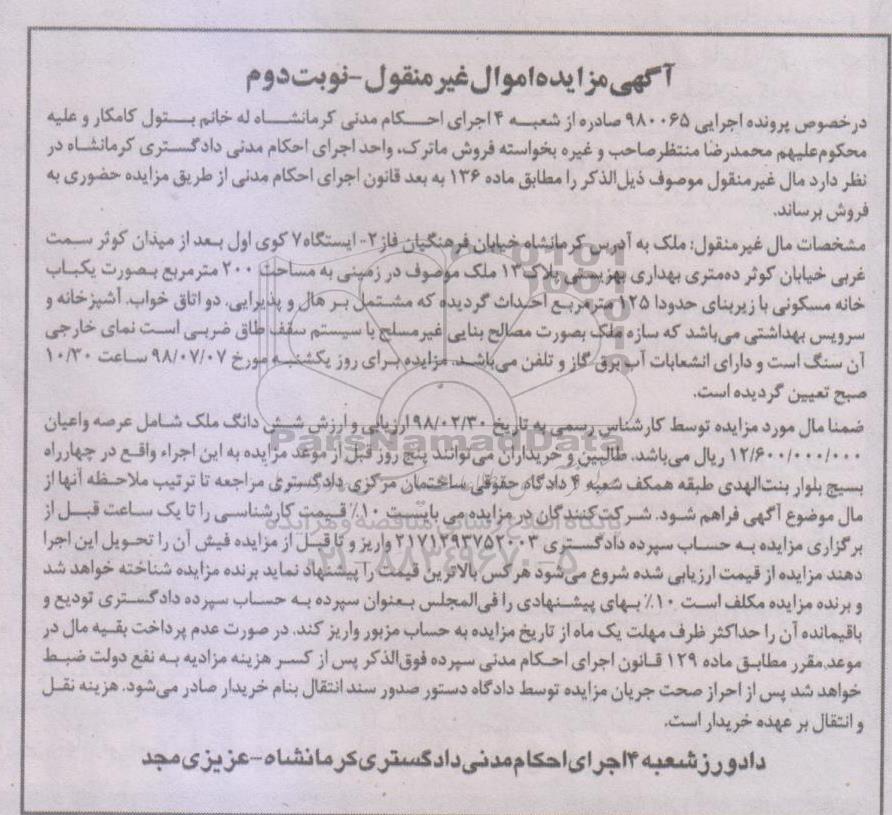 آگهی مزایده اموال غیر منقول - نوبت دوم
درخصوص پرونده اجرایی ۹۸۰۰۶۵ صادره از شعبه ۴ اجرای احکام مدنی کرمانشاه له خانم بتول کامکار و علیه
محکوم‌علیهم محمدرضا منتظرصاحب و غیره بخواسته فروش ماترک، واحد اجرای احکام مدنی دادگستری کرمانشاه در
نظر دارد مال غیرمنقول موصوف ذیل‌الذکر را مطابق ماده ۱۳۶ به بعد قانون اجرای احکام مدنی از طریق مزایده حضوری به
فروش برساند.
مشخصات مال غیرمنقول: ملک به آدرس کرمانشاه خیابان فرهنگیان فاز ۲- ایستگاه ۷ کوی اول بعد از میدان کوثر سمت
غربی خیابان کوثر ده‌متری بهداری بهزیستی پلاک ۱۳ ملک موصوف در زمینی به مساحت ۲۰۰ مترمربع بصورت یکباب
خانه مسکونی با زیربنای حدودا ۱۲۵ مترمربع احداث گردیده که مشتمل بر هال و پذیرایی، دو اتاق خواب، آشپزخانه و
سرویس بهداشتی می‌باشد که سازه ملک بصورت مصالح بنایی غیرمسلح با سیستم سقف طاق ضربی است نمای خارجی
آن سنگ است و دارای انشعابات آب برق گاز و تلفن می‌باشد. مزایده برای روز یکشنبه مورخ ۹۸/۰۷/۰۷ ساعت ۱۰/۳۰
صبح تعیین گردیده است.
ضمنا مال مورد مزایده توسط کارشناس رسمی به تاریخ ۹۸/۰۲/۳۰ ارزیابی و ارزش شش دانگ ملک شامل عرصه واعیان
۱۲/۶۰۰/۰۰۰/۰۰۰ ریال می‌باشد. طالبین و خریداران می‌توانند پنج روز قبل از موعد مزایده به این اجراء واقع در چهارراه
بسیج بلوار بنت‌الهدی طبقه همکف شعبه ۴ دادگاه حقوقی ساختمان مرکزی دادگستری مراجعه تا ترتیب ملاحظه آنها از
مال موضوع آگهی فراهم شود. شرکت‌کنندگان در مزایده می بایست ۱۰٪ قیمت کارشناسی را تا یک ساعت قبل از
برگزاری مزایده به حساب سپرده دادگستری ۲۱۷۱۲۹۳۷۵۲۰۰۳ واریز و تا قبل از مزایده فیش آن را تحویل این اجرا
دهند مزایده از قیمت ارزیابی شده شروع می‌شود هرکس بالاترین قیمت را پیشنهاد نماید برنده مزایده شناخته خواهد شد
و برنده مزایده مکلف است ۱۰٪ بهای پیشنهادی را فی‌المجلس بعنوان سپرده به حساب سپرده دادگستری تودیع و
باقیمانده آن را حداکثر ظرف مهلت یک ماه از تاریخ مزایده به حساب مزبور واریز کند. در صورت عدم پرداخت بقیه مال در
موعد مقرر مطابق ماده ۱۲۹ قانون اجرای احکام مدنی سپرده فوق‌الذکر پس از کسر هزینه مزادیه به نفع دولت ضبط
خواهد شد پس از احراز صحت جریان مزایده توسط دادگاه دستور صدور سند انتقال بنام خریدار صادر می‌شود. هزینه نقل
و انتقال بر عهده خریدار است.
دادورز شعبه ۴ اجرای احکام مدنی دادگستری کرمانشاه - عزیزی مجد
ParsNamadData
پایگاه اطلاع رسانی مناقصه و مزایده
۰۲۱-۸۸۳۴۹۶۷۰-۵